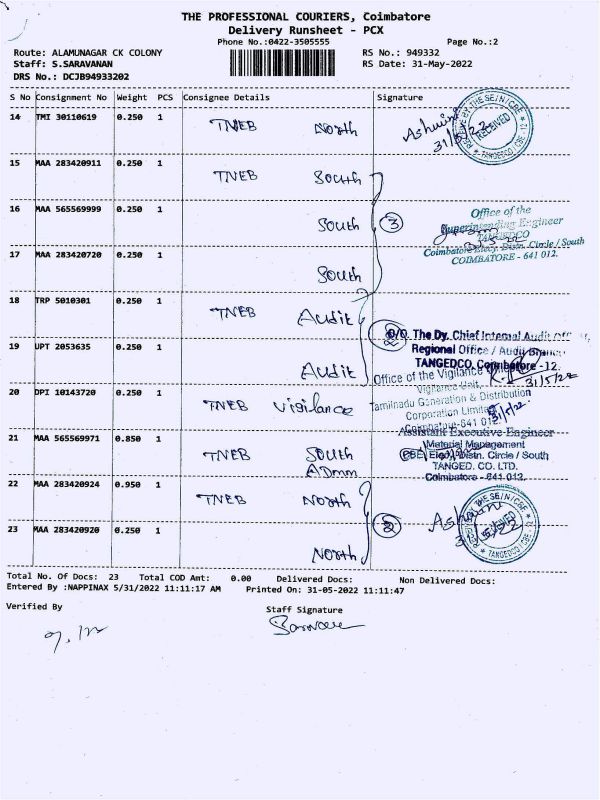 THE PROFESSIONAL COURIERS, Coimbatore
Delivery Runsheet - PCX
Phone No.:0422-3505555 Page No.:2
Route: ALAMUNAGAR CK COLONY RS No.: 949332
Staff: S.SARAVANAN RS Date: 31-May-2022
DRS No.: DCJB94933202
S No Consignment No Weight PCS Consignee Details Signature
14 TMI 30110619 0.250 1 TNEB North Ashwini
31/5/22
RECEIVED
15 MAA 283420911 0.250 1 TNEB South
16 MAA 565569999 0.250 1 South 3
Office of the
Superintending Engineer
TANGEDCO
Coimbatore Elecy. Distn. Circle / South
COIMBATORE - 641 012.
17 MAA 283420720 0.250 1 South
18 TRP 5010301 0.250 1 TNEB Audit
O/O. The Dy. Chief Internal Audit
19 UPT 2053635 0.250 1 Audit
Regional Office / Audit Branch
TANGEDCO, Coimbatore -12.
31/5/22
20 DPI 10143720 0.250 1 TNEB Vigilance
Office of the Vigilance
Vigilance Unit,
Tamilnadu Generation & Distribution
Corporation Limited
Coimbatore-641 012.
31/5/22.
21 MAA 565569971 0.850 1 TNEB South
Admn
Assistant Executive Engineer
Material Management
CBE Elecy. Distn. Circle / South
TANGED. CO. LTD.
Coimbatore - 641 012.
22 MAA 283420924 0.950 1 TNEB North
23 MAA 283420920 0.250 1 North
Total No. Of Docs: 23 Total COD Amt: 0.00 Delivered Docs: Non Delivered Docs:
Entered By :NAPPINAX 5/31/2022 11:11:17 AM Printed On: 31-05-2022 11:11:47
Verified By Staff Signature